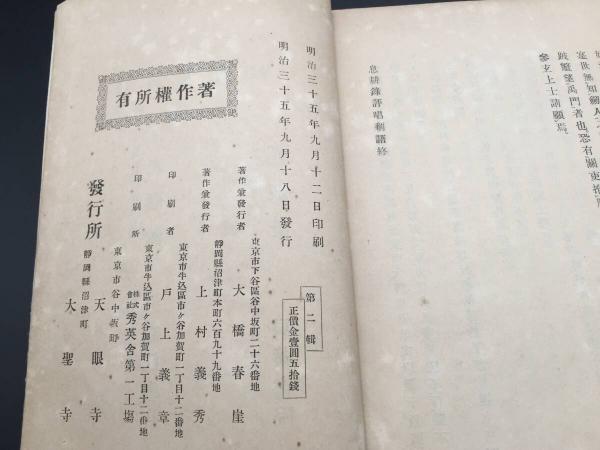 參玄上士請願焉
息耕錄評唱剩語終
明治三十五年九月十二日印刷
明治三十五年九月十八日發行
第二輯
正價金壹圓五拾錢
東京市下谷區谷中坂町二十六番地
著作兼發行者　大橋春崖
靜岡縣沼津町本町六百九十九番地
著作兼發行者　上村義秀
東京市牛込區市ヶ谷加賀町一丁目十二番地
印刷者　戸上義章
東京市牛込區市ヶ谷加賀町一丁目十二番地
印刷所　株式會社秀英舍第一工場
東京市谷中坂町
發行所　天眼寺
靜岡縣沼津町
大聖寺
著作權所有